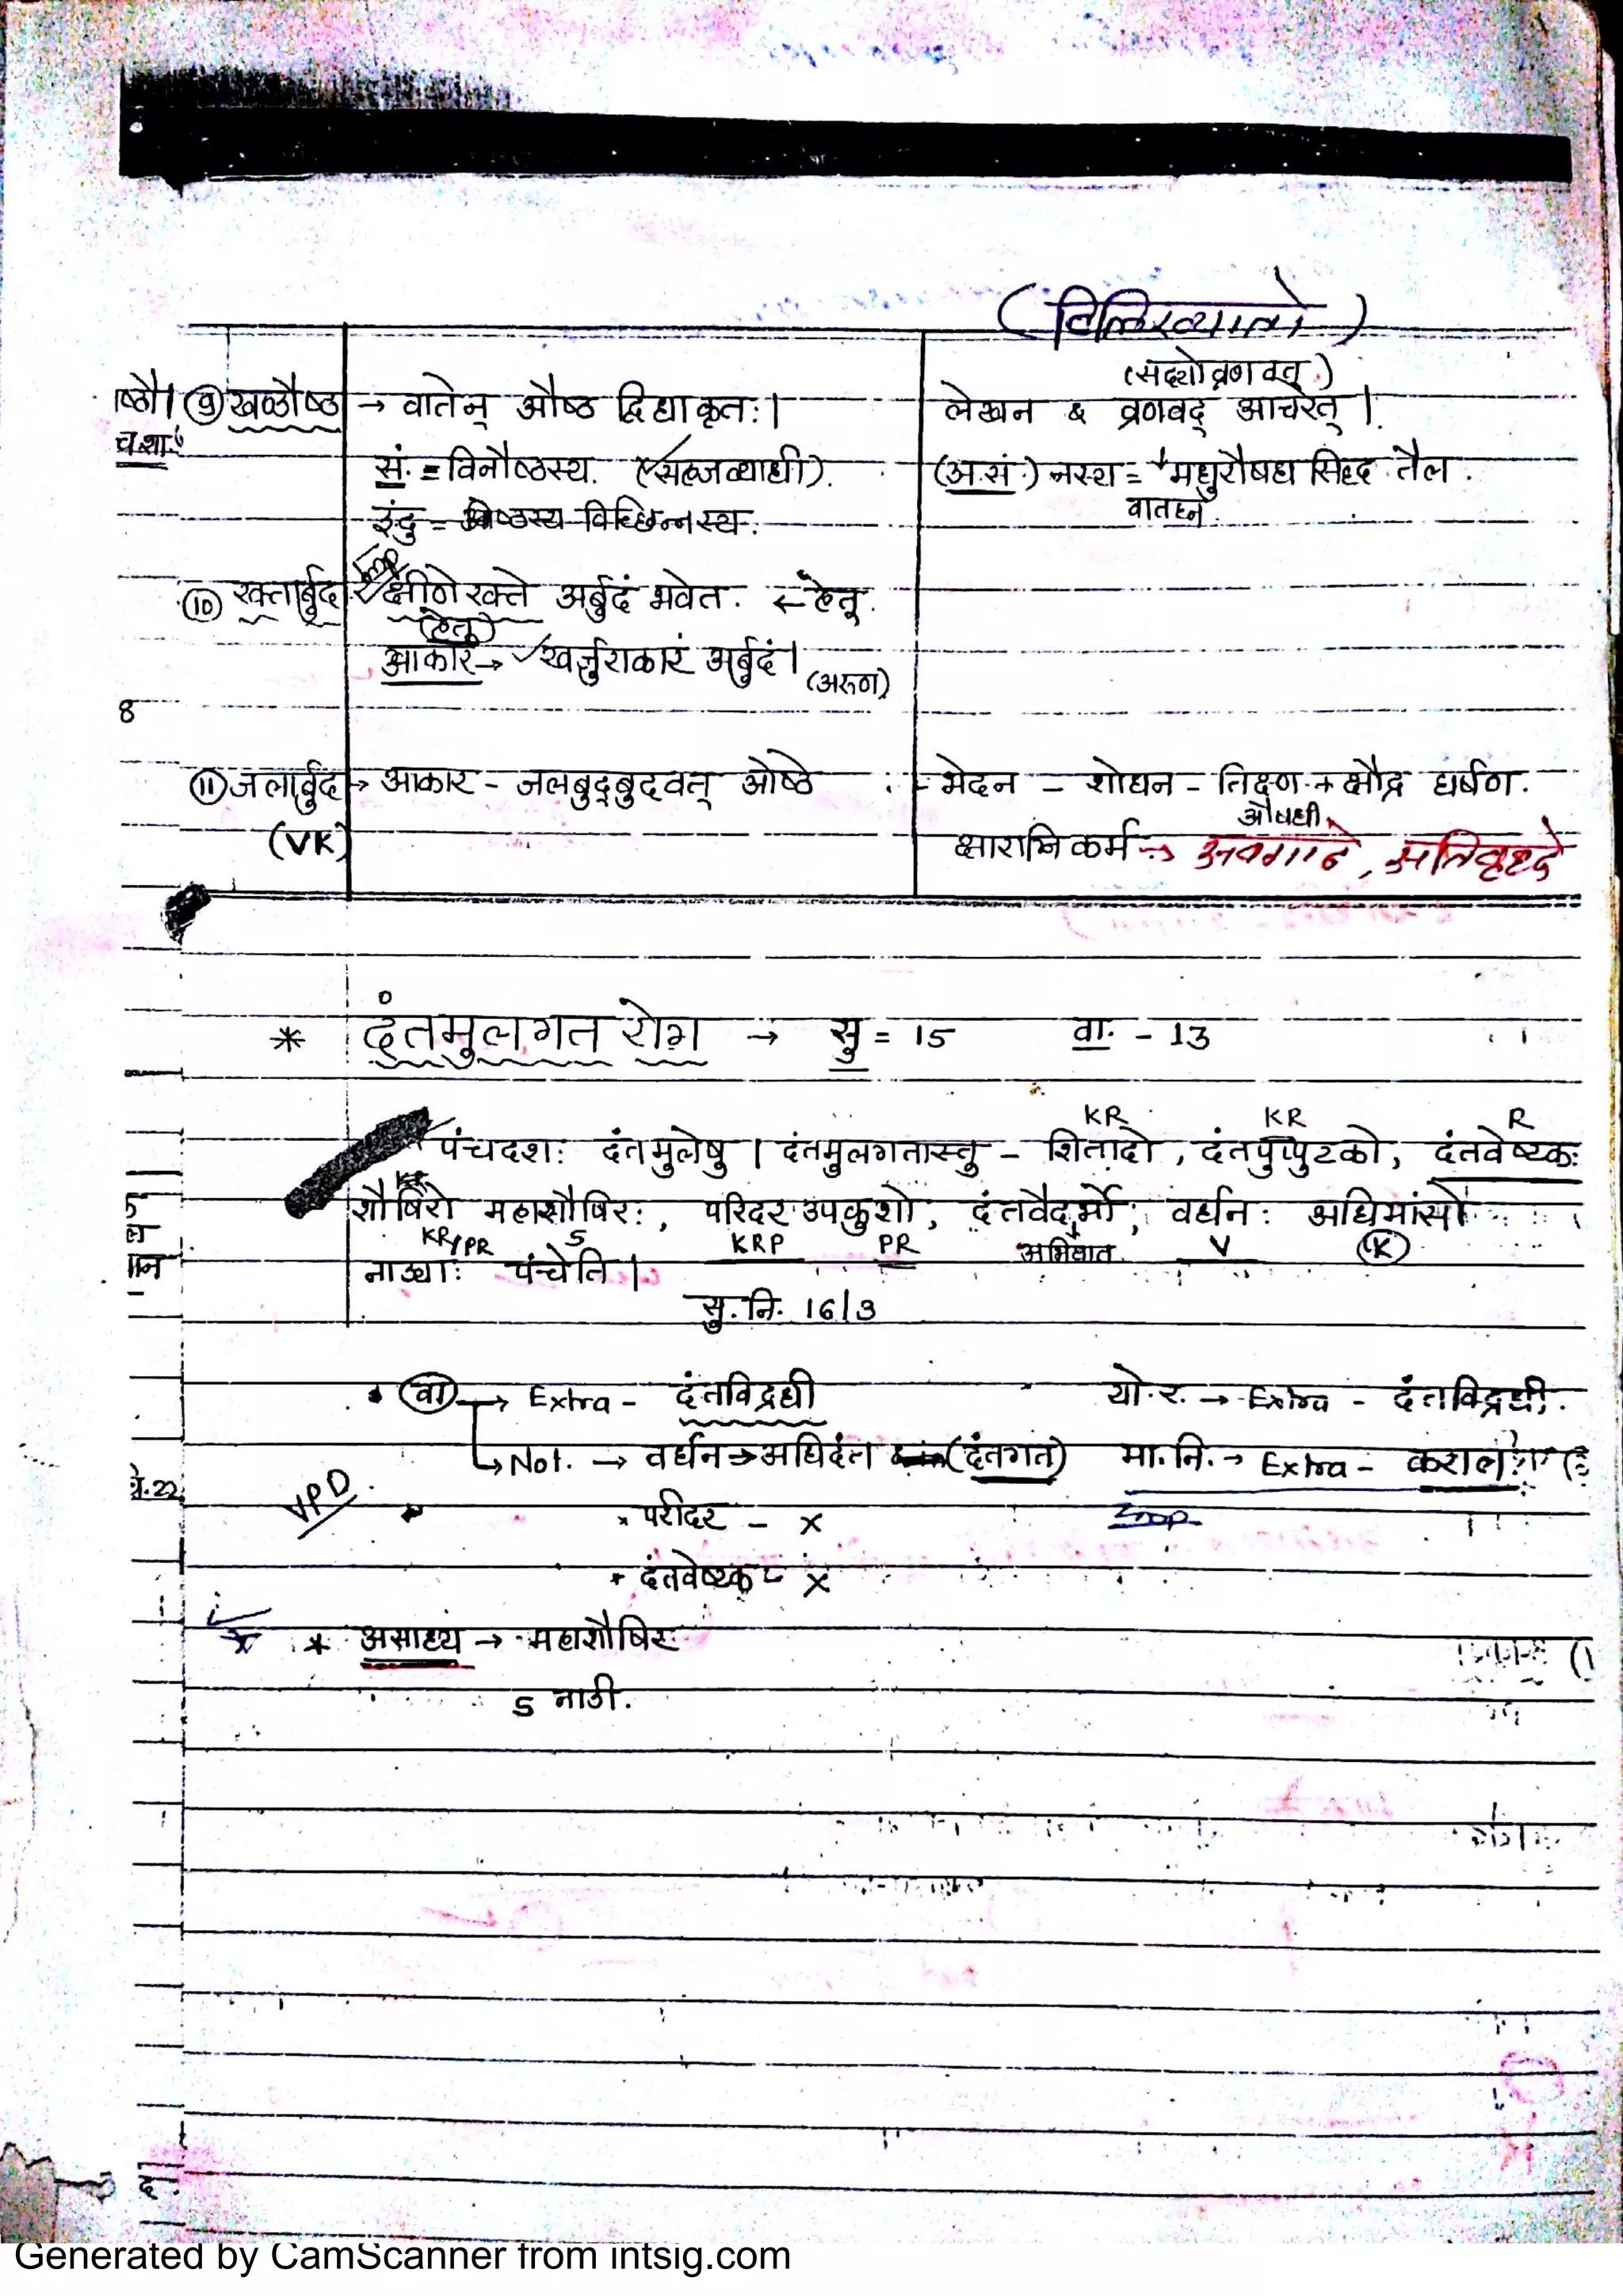 (विलिख्यान्ते)
(सद्योव्रणवत्)
ष्ठौ। ⑨ खण्डौष्ठ → वातेन् औष्ठ द्विधाकृतः। लेखन & व्रणवद् आचरेत्।
सं. = विनौष्ठस्य. (सहजव्याधी). (अ.सं.) नस्य = मधुरौषध सिद्ध तैल.
वातघ्न
इंदु = ओष्ठस्य विच्छिन्नस्य.
Imp
⑩ रक्तार्बुद क्षीणे रक्ते अर्बुदं भवेत. ← हेतू.
(हेतू)
आकार → खर्जुराकारं अर्बुदं। (अरुण)
8
⑪ जलार्बुद → आकार - जलबुद्बुदवत् ओष्ठे - भेदन - शोधन - तिक्ष्ण + क्षौद्र घर्षण.
औषधी
(VK) क्षाराग्निकर्म → अवगाढे, अतिवृध्दे
* दंतमुलगत रोग → सु = 15 वा. - 13
KR KR R
पंचदशः दंतमुलेषु। दंतमुलगतास्तु - शितादो, दंतपुप्पुटको, दंतवेष्टकः
शौषिरो महाशौषिरः, परिदर उपकुशो, दंतवैदर्भो, वर्धनः अधिमांसो
KR/PR S KRP PR अभिघात V (K)
नाड्याः पंचेति।
सु.नि. 16/3
• (वा) → Extra - दंतविद्रधी यो.र. → Extra - दंतविद्रधी.
→ Not. → वर्धन → अधिदंत (दंतगत) मा.नि. → Extra - कराल
VPD परीदर - x Imp
दंतवेष्टक - x
* असाध्य → महाशौषिर
5 नाडी.
Generated by CamScanner from intsig.com